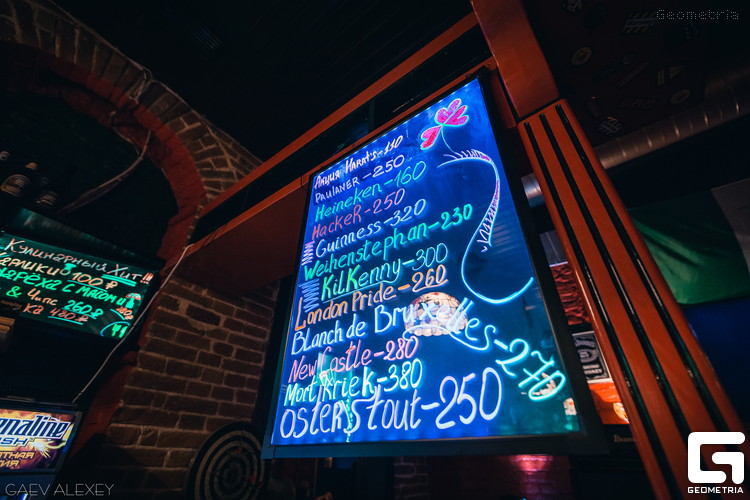 Geometria
Акция Harat's-110
Paulaner-250
Heineken-160
Hacker-250
Guinness-320
Weihenstephan-230
KilKenny-300
London Pride-260
Blanch de Bruxelles-270
NewCastle-280
Mort Kriek-380
Oster Stout-250
Кулинарный Хит!!!
100₽
с Мясом и
& Чипс 260₽
ка 480
GAEV ALEXEY
G
GEOMETRIA